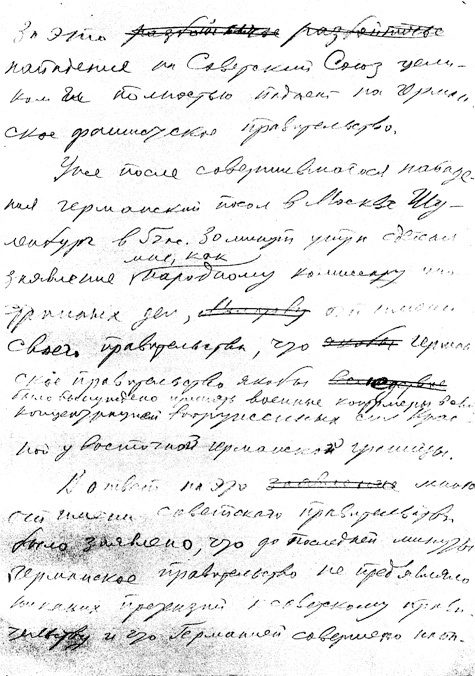 За это разбойничье разбойничье
нападение на Советский Союз цели-
ком и полностью падает на герман-
ское фашистское правительство.
Уже после совершившегося нападе-
ния германский посол в Москве Шу-
ленбург в 5 час. 30 минут утра сделал
мне, как
заявление народному комиссару ино-
странных дел, от имени
своего правительства, что якобы герман-
ское правительство якобы
было вынуждено принять военные контрмеры в связи
концентрацией вооруженных сил Крас-
ной у восточной германской границы.
В ответ на это заявление мною
от имени советского правительства
было заявлено, что до последней минуты
германское правительство не предъявляло
никаких претензий к советскому прави-
тельству и что Германией совершено напа-